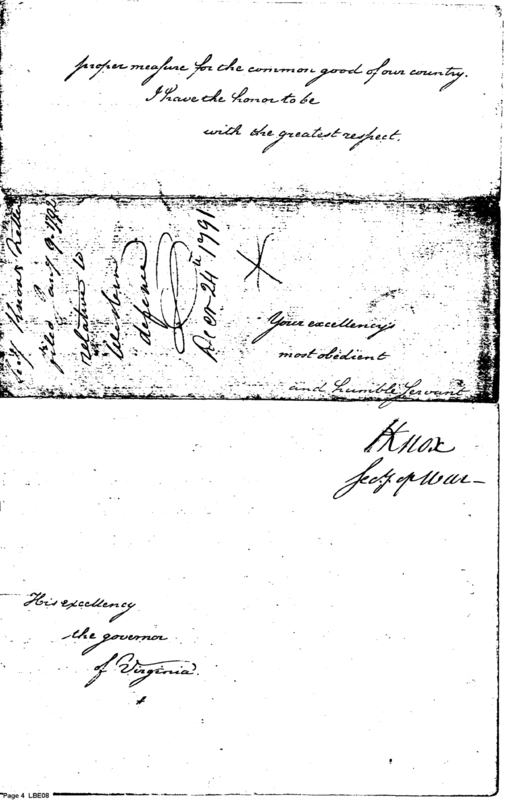 proper measure for the common good of our country.
I have the honor to be
with the greatest respect.
Your excellency's
most obedient
and humble Servant
HKnox
Secy of War
His excellency
the governor
of Virginia.
Secy Knox's Letter
filed
relative to
Western
defence
Decr 24th 1791
Page 4 LBE08